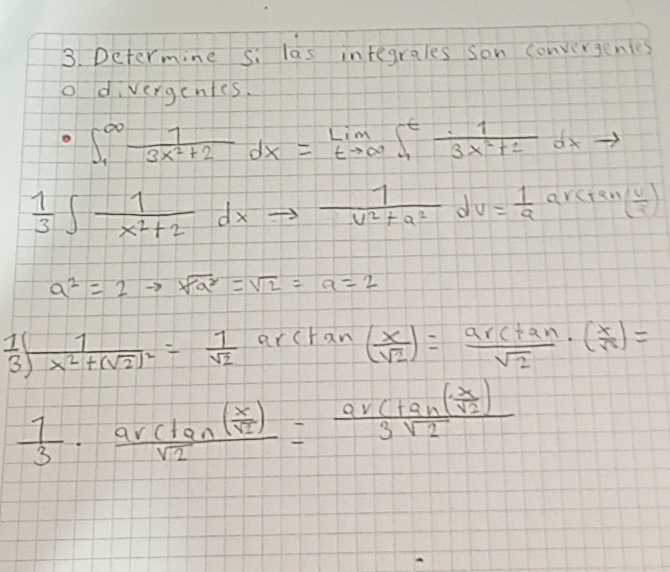 3. Determine si las integrales son convergentes
o divergentes.
• ∫₁^∞ 1/(3x²+2) dx = Lim t→∞ ∫₁^t 1/(3x²+2) dx →
1/3 ∫ 1/(x²+2) dx → 1/(u²+a²) du = 1/a arctan(u/a)
a² = 2 → √a² = √2 = a = 2
1/3 ∫ 1/(x²+(√2)²) = 1/√2 arctan (x/√2) = arctan/√2 · (x/√2) =
1/3 · arctan(x/√2)/√2 = arctan(x/√2)/(3√2)